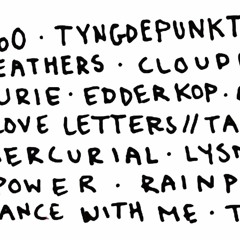 OO · TYNGDEPUNKT
EATHERS · CLOUD
URIE · EDDERKOP ·
LOVE LETTERS // TA
ERCURIAL · LYS
POWER · RAINP
ANCE WITH ME · T